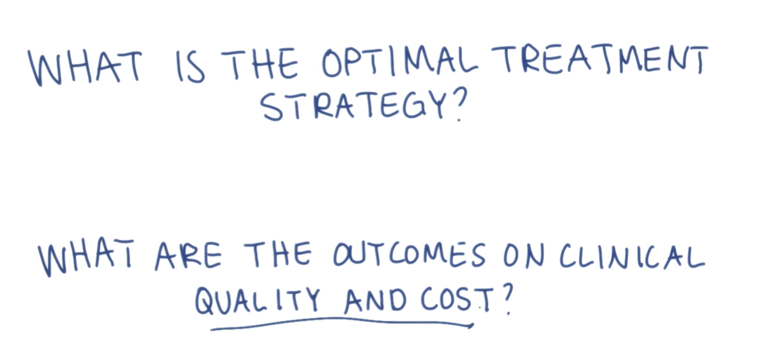 WHAT IS THE OPTIMAL TREATMENT
STRATEGY?
WHAT ARE THE OUTCOMES ON CLINICAL
QUALITY AND COST?